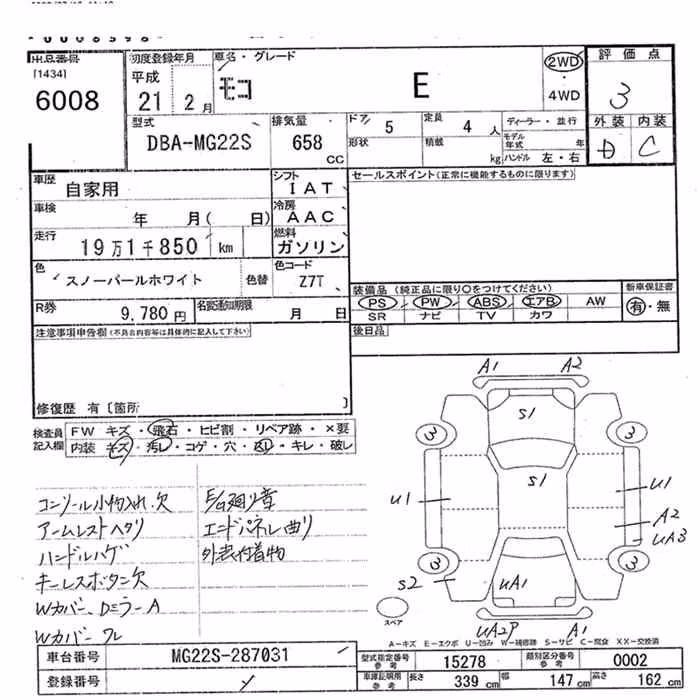 出品番号 初度登録年月 車名・グレード 2WD 評価点
[1434] 平成 モコ E ・ 3
6008 21 2月 4WD
型式 排気量 ドア 5 定員 4人 ディーラー・並行 外装 内装
DBA-MG22S 658 CC 形状 積載 kg モデル年式 年 D C
ハンドル 左・右
車歴 自家用 シフト IAT セールスポイント(正常に機能するものに限ります)
車検 年 月( 日) 冷房 AAC
走行 19万1千850 km 燃料 ガソリン
色 スノーパールホワイト 色替 色コード Z7T
装備品(純正品に限り○をつけてください) 新車保証書
PS PW ABS エアB AW 有・無
SR ナビ TV カワ
R券 9,780円 名変通知期限 月 日
注意事項申告欄(不具合内容等は具体的に記入して下さい) 後日品
修復歴 有〔箇所 〕
検査員記入欄 FW キズ・飛石・ヒビ割・リペア跡・×要
内装 キズ・汚レ・コゲ・穴・・キレ・破レ
コンソール小物入れ.欠 E/G廻り音
アームレストヘタリ エンドパネル曲リ
ハンドルハゲ 外装付着物
キーレスボタン欠
Wカバー、Dミラー A
Wカバー ワレ
A1 A2
S1
3 3
S1
U1 U1
A2
UA3
3 3
S2 UA1
スペア
UA2P A1
A-キズ E-エクボ U-凹み W-補修跡 S-サビ C-腐食 XX-交換済
車台番号 MG22S-287031 型式指定番号 参考 15278 類別区分番号 参考 0002
登録番号 車庫証明用 参考 長さ 339 cm 幅 147 cm 高さ 162 cm